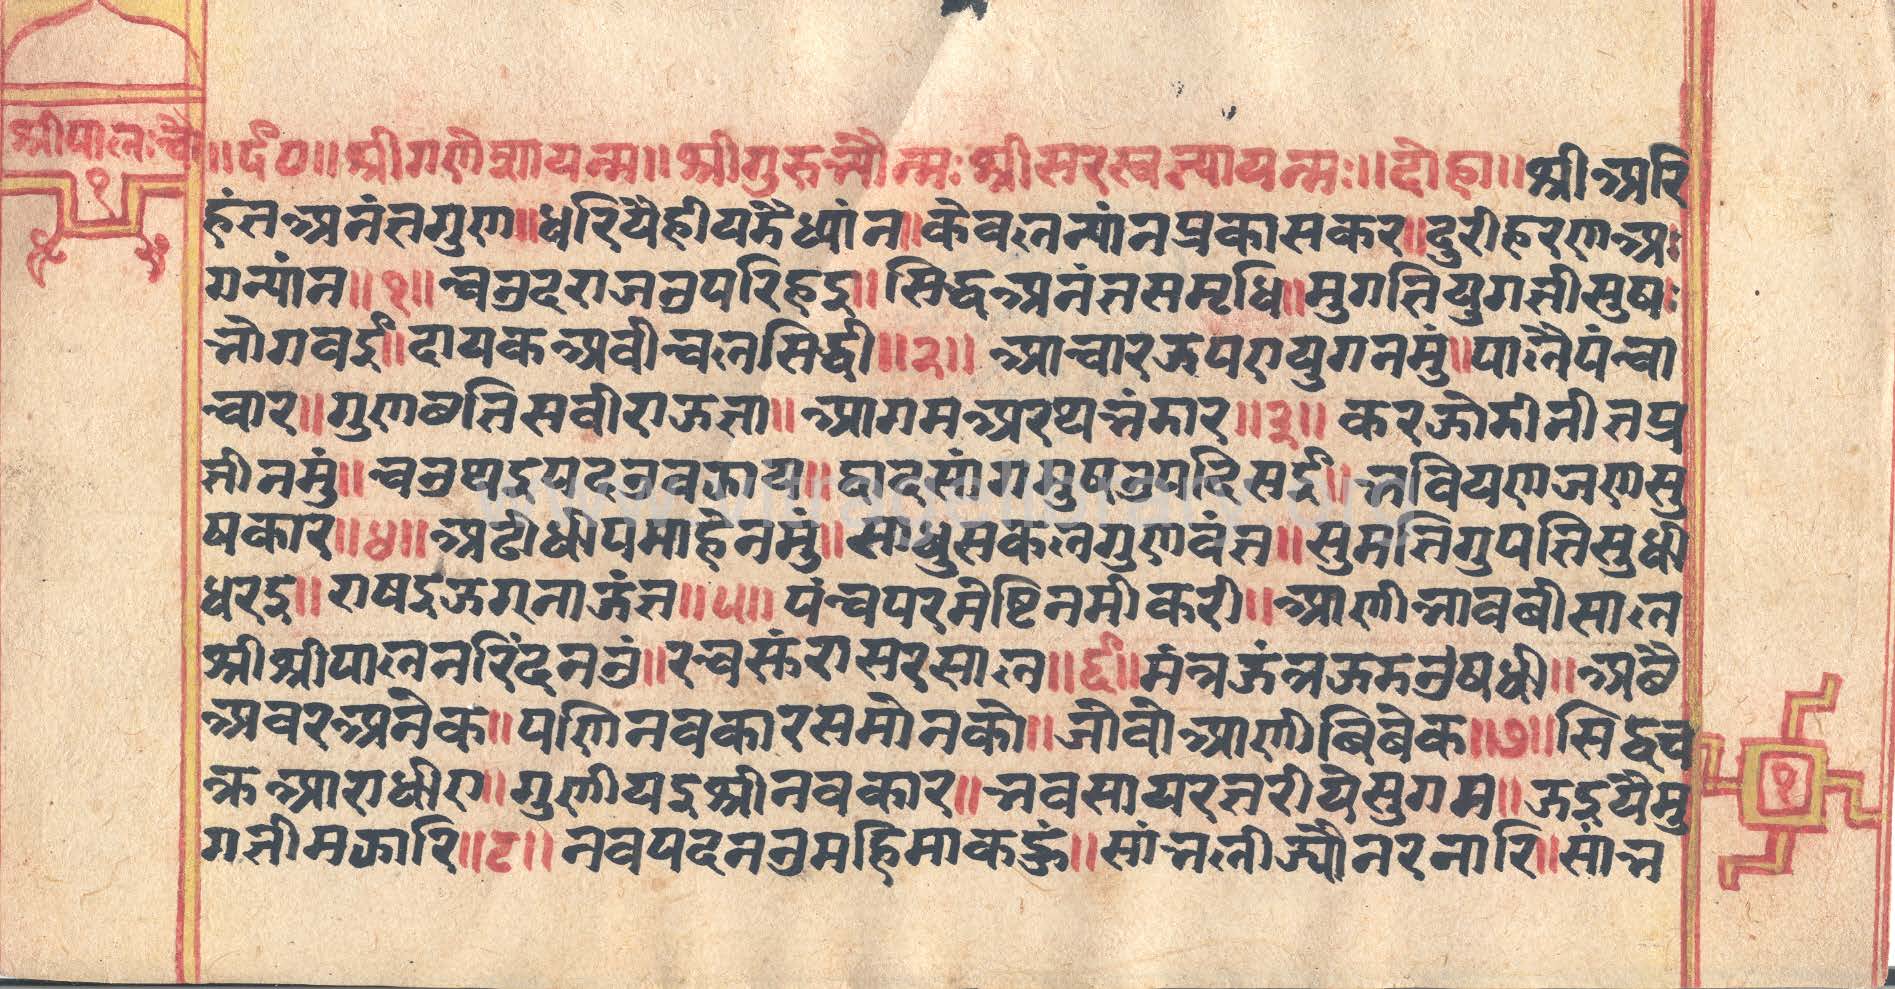 श्रीपालःचौ
१
॥र्द०॥ श्रीगणैशायन्म॥ श्रीगुरुभ्यौन्मः श्रीसरस्वत्यायन्मः॥ दोहा॥ श्रीअरि
हंतअनंतगुण॥ धरियैहीयडैध्यांन॥ केवलग्यांनप्रकासकर॥ दुरीहरणअ
गन्यांन॥१॥ चउदराजउपरिहइ॥ सिद्धअनंतसमृधि॥ मुगतियुगतीसुष
भोगवईं॥ दायकअवीचलसिद्धी॥२॥ आचारजपणयुगनमुं॥ पालैपंचा
चार॥ गुणछतिसवीराजता॥ आगमअरथभंडार॥३॥ करजोडीनीतप्र
तीनमुं॥ चउथइपदउवझाय॥ द्वादसांगमुषउपदिसईं॥ भवियणजणसु
षकार॥४॥ अढीधीपमाहेनमुं॥ साधुसकलगुणवंत॥ सुमतिगुपतिसुधी
धरइ॥ राषइजगनाजंत॥५॥ पंचपरमेष्टिनमीकरी॥ आणीभावबीसाल
श्रीश्रीपालनरिंदनउं॥ रचसुंरासरसाल॥६॥ मंत्रजंत्रजडउषधी॥ अबै
अवरअनेक॥ पणिनवकारसमोनको॥ जोवोआणीबिबेक॥७॥ सिद्धच
क्रआराधीए॥ गुणीयइश्रीनवकार॥ भवसायरतरीयैसुगम॥ जइयैमु
गतीमझारि॥८॥ नवपदनउमहिमाकहुं॥ सांभलीज्यौनरनारि॥ सांभ
१
www.vitragelibrary.org